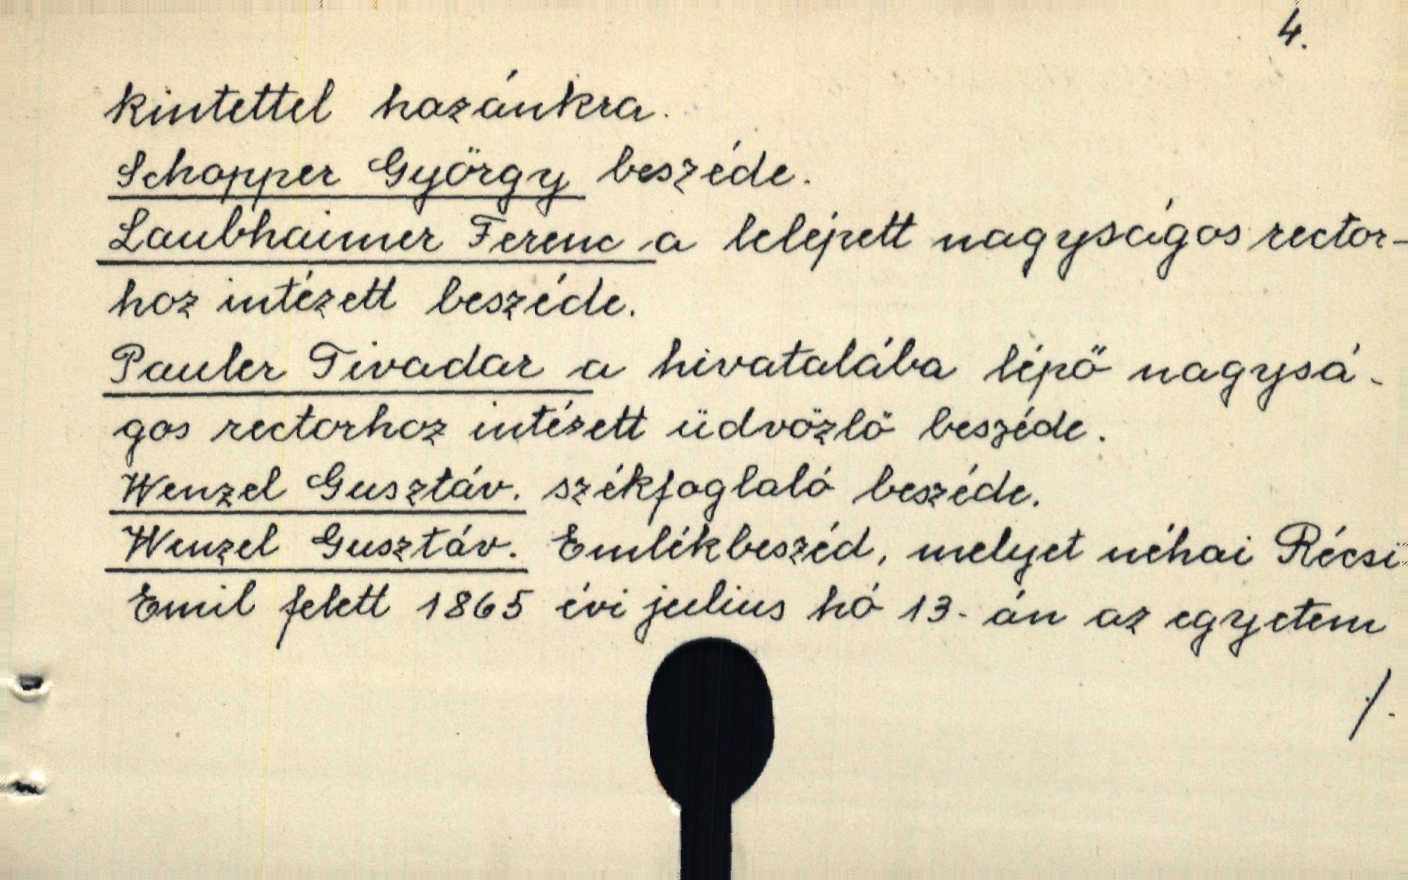 4.
kintettel hazánkra.
Schopper György beszéde.
Laubhaimer Ferenc a lelépett nagyságos rector-
hoz intézett beszéde.
Pauler Tivadar a hivatalába lépő nagysá-
gos rectorhoz intézett üdvözlő beszéde.
Wenzel Gusztáv. székfoglaló beszéde.
Wenzel Gusztáv. Emlékbeszéd, melyet néhai Récsi
Emil felett 1865 évi julius hó 13.-án az egyetem
/.